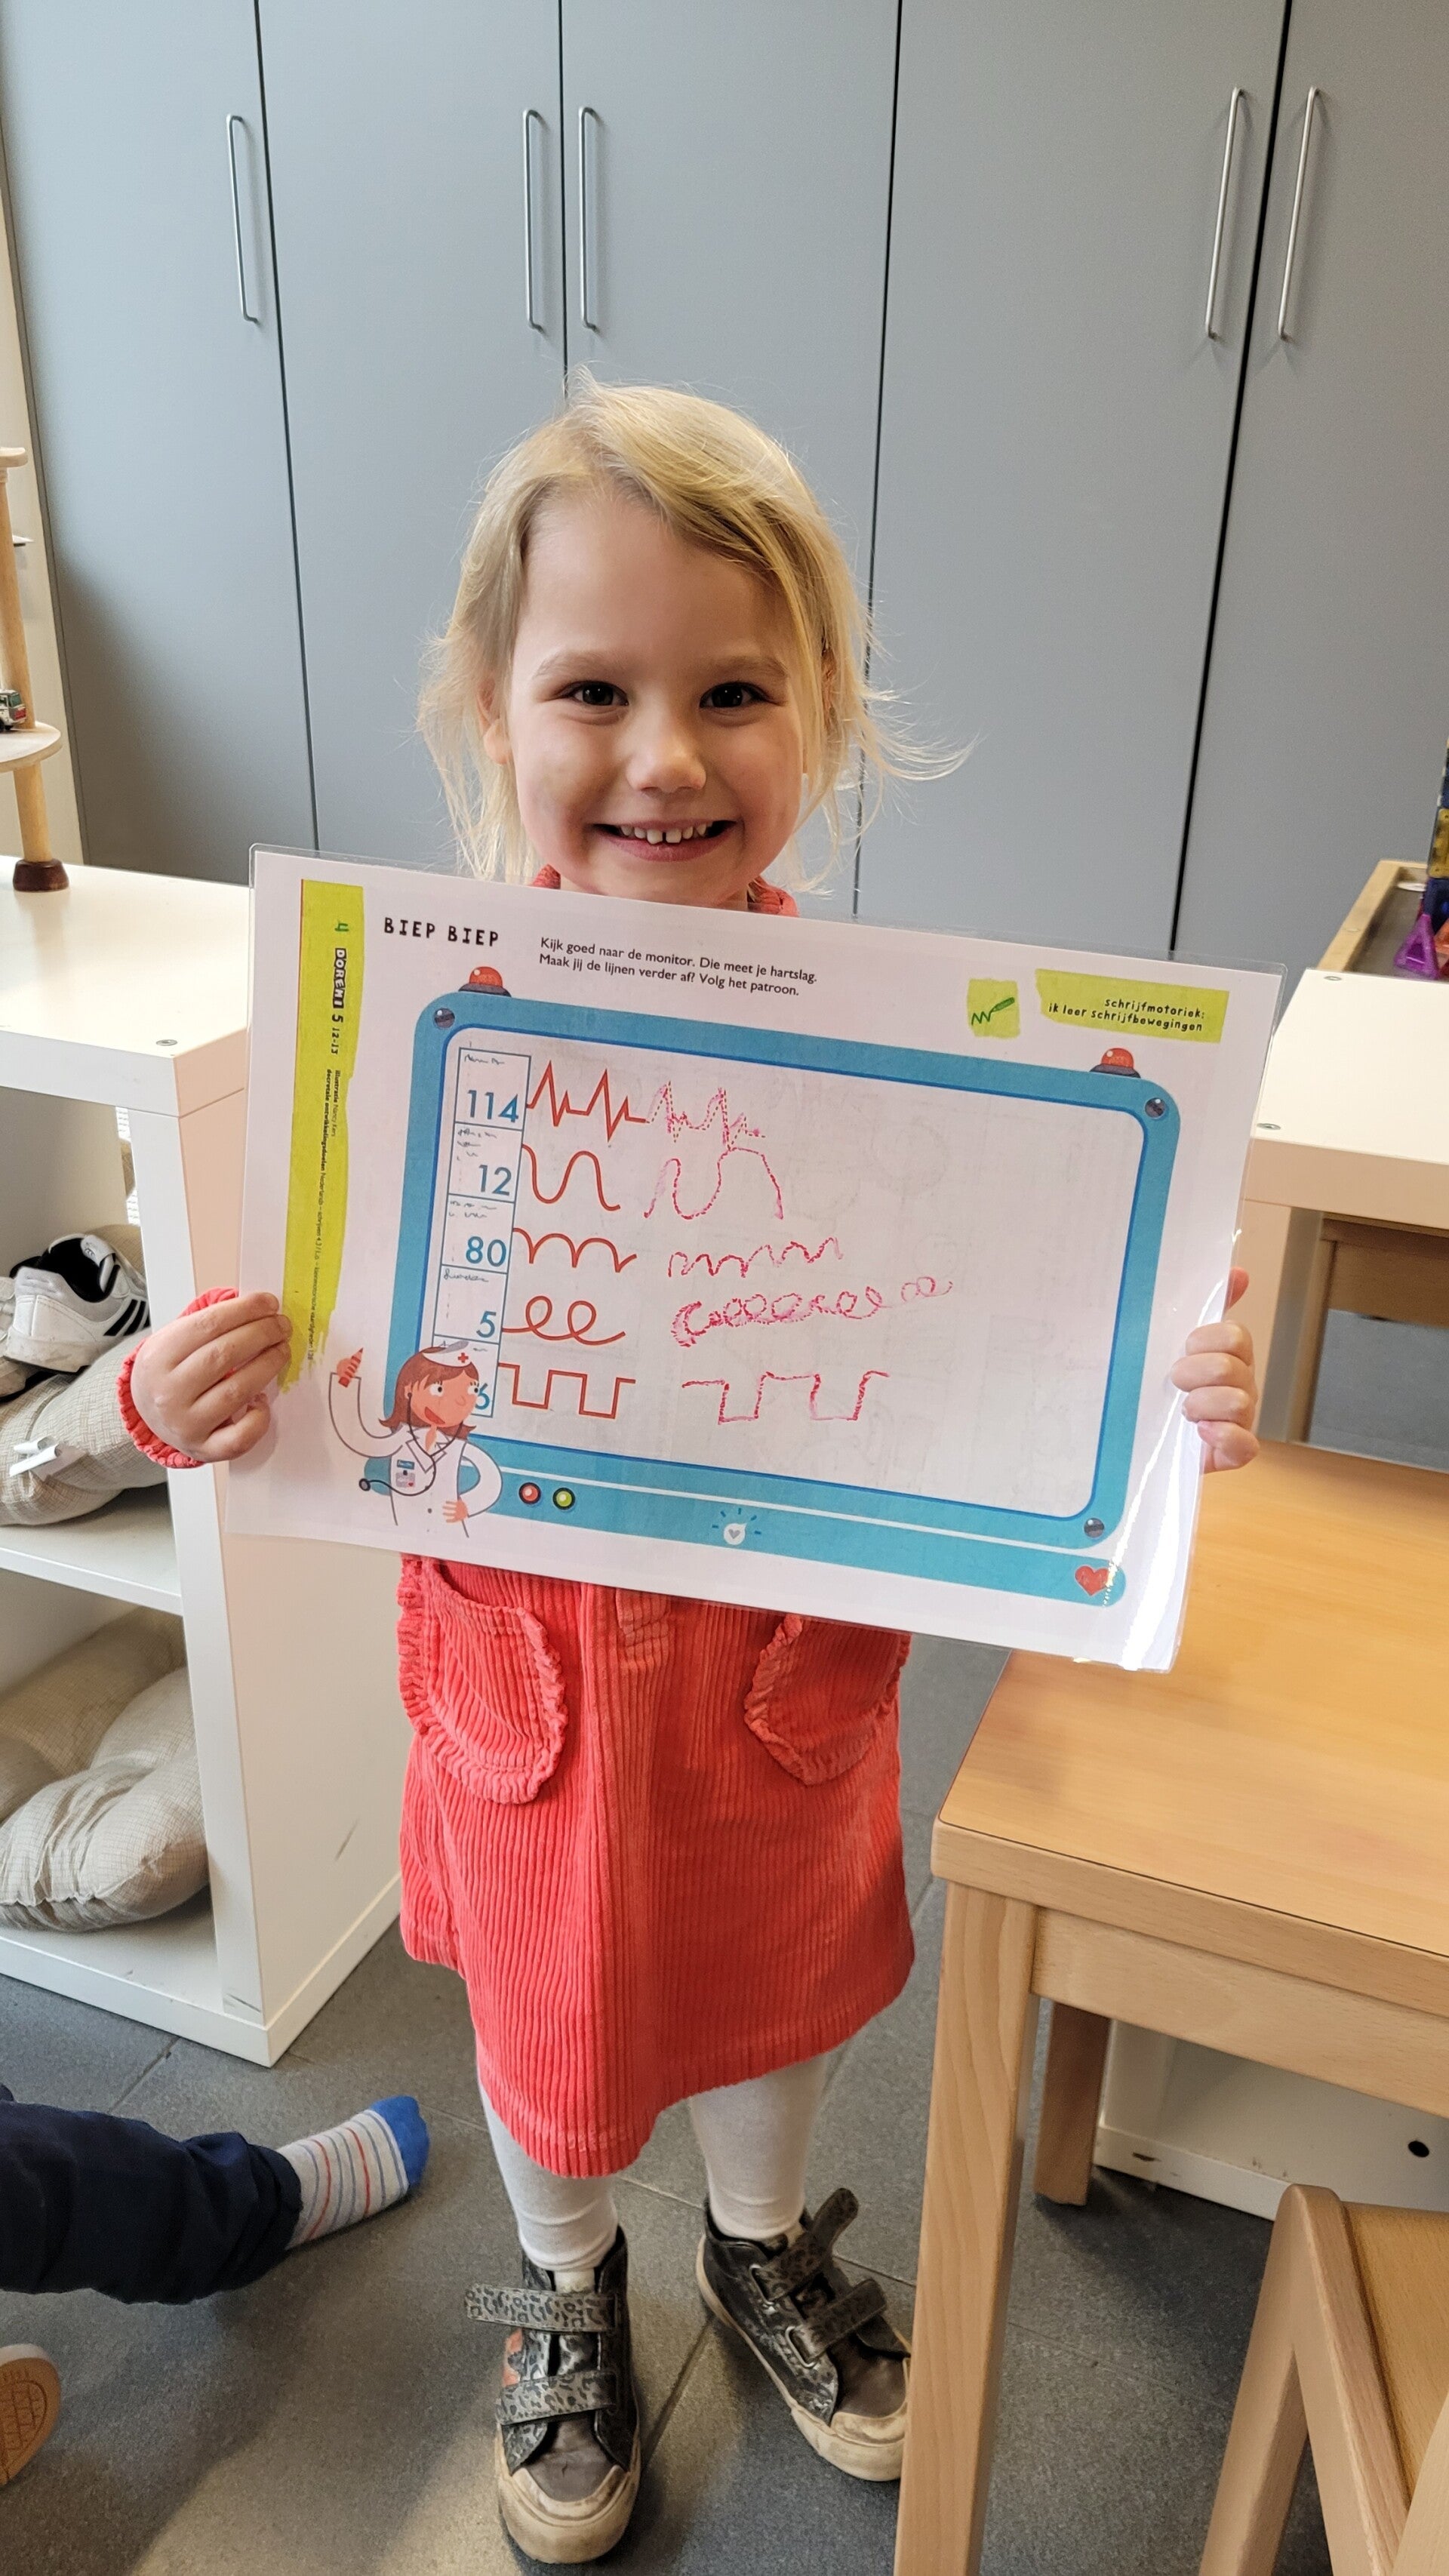 BIEP BIEP
Kijk goed naar de monitor. Die meet je hartslag.
Maak jij de lijnen verder af? Volg het patroon.
schrijfmotoriek:
ik leer schrijfbewegingen
4 DOREMI 5 12-13
114
12
80
5
6